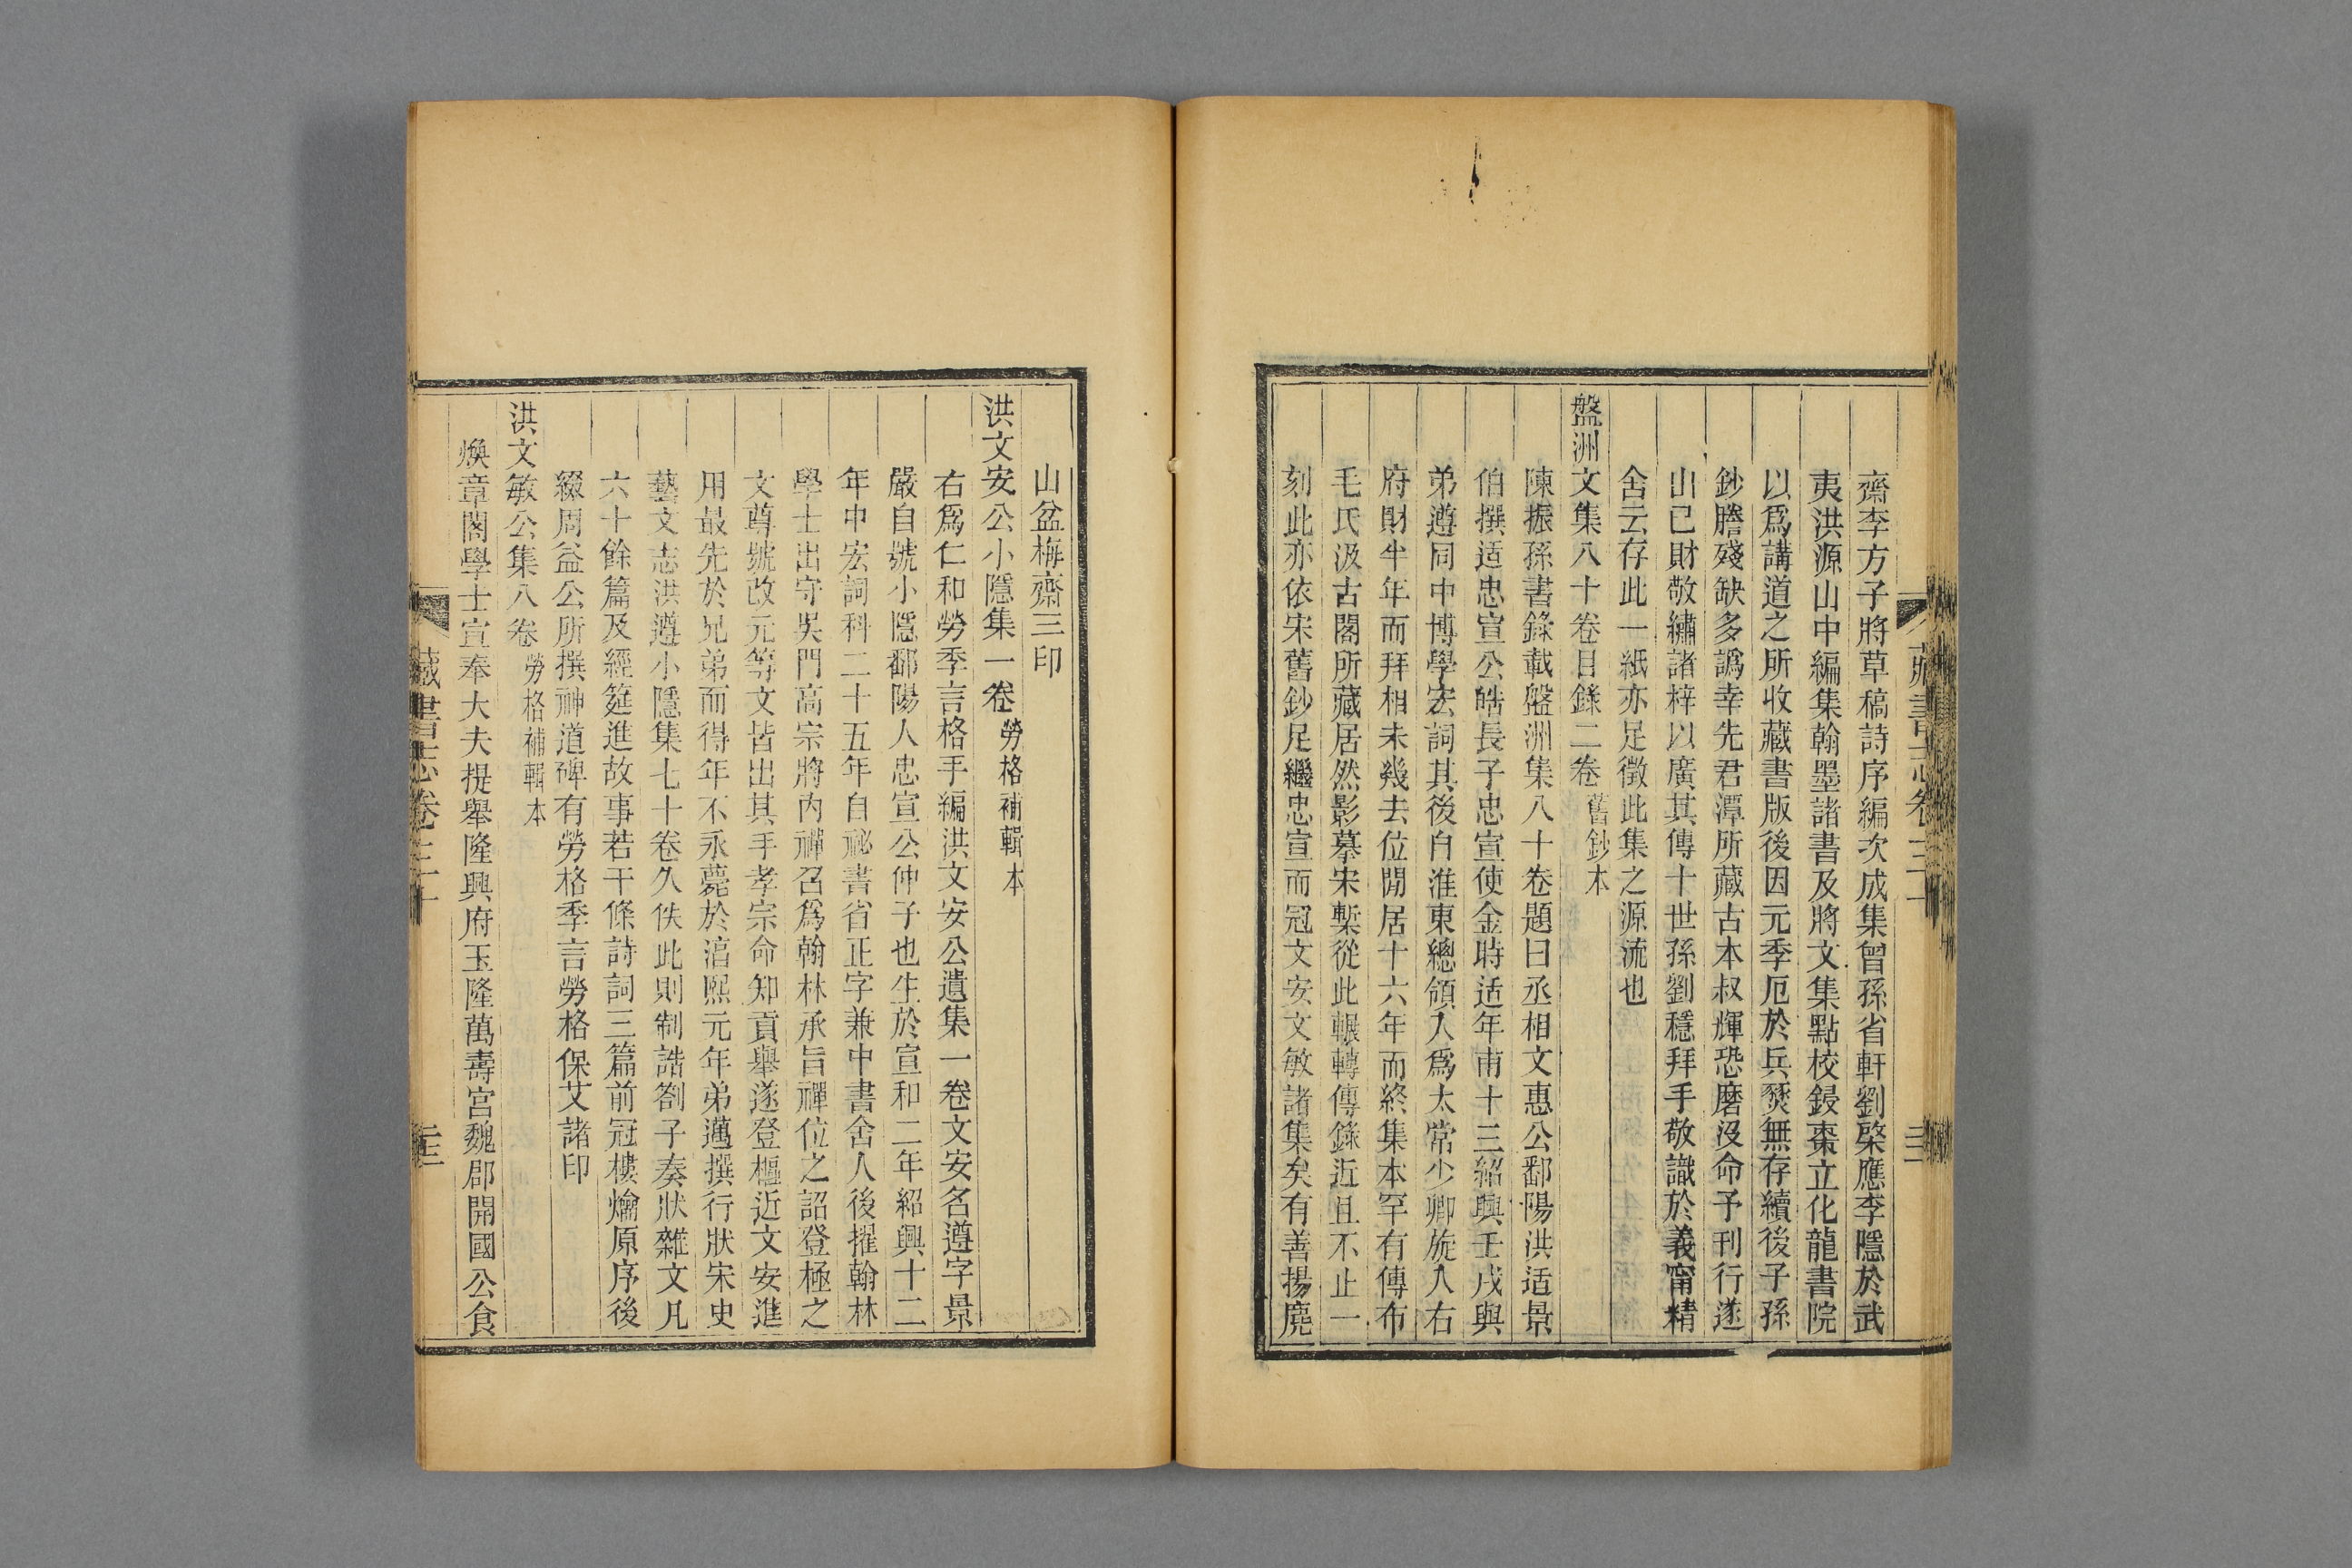 藏書志卷三十
齋李方子將草稿詩序編次成集曾孫省軒劉棨應李隱於武
夷洪源山中編集翰墨諸書及將文集點校鋟棗立化龍書院
以爲講道之所收藏書版後因元季厄於兵燹無存續後子孫
鈔謄殘缺多譌幸先君潭所藏古本叔輝恐磨沒命予刊行遂
山己財敬繡諸梓以廣其傳十世孫劉穩拜手敬識於義甯精
舍云存此一紙亦足徵此集之源流也
盤洲文集八十卷目錄二卷 舊鈔本
陳振孫書錄載盤洲集八十卷題曰丞相文惠公鄱陽洪适景
伯撰适忠宣公皓長子忠宣使金時适年甫十三紹興壬戌與
弟遵同中博學宏詞其後自淮東總領入爲太常少卿旋入右
府財半年而拜相未幾去位閒居十六年而終集本罕有傳布
毛氏汲古閣所藏居然影摹宋槧從此輾轉傳錄近且不止一
刻此亦依宋舊鈔足繼忠宣而冠文安文敏諸集矣有善揚麂
山盆梅齋三印
洪文安公小隱集一卷 勞格補輯本
右爲仁和勞季言格手編洪文安公遺集一卷文安名遵字景
嚴自號小隱鄱陽人忠宣公仲子也生於宣和二年紹興十二
年中宏詞科二十五年自祕書省正字兼中書舍人後擢翰林
學士出守吳門高宗將內禪召爲翰林承旨禪位之詔登極之
文尊號改元等文皆出其手孝宗命知貢舉遂登樞近文安進
用最先於兄弟而得年不永薨於淳熙元年弟邁撰行狀宋史
藝文志洪遵小隱集七十卷久佚此則制誥劄子奏狀雜文凡
六十餘篇及經筵進故事若干條詩詞三篇前冠樓鑰原序後
綴周益公所撰神道碑有勞格季言勞格保艾諸印
洪文敏公集八卷 勞格補輯本
煥章閣學士宣奉大夫提舉隆興府玉隆萬壽宮魏郡開國公食
藏書志卷三十